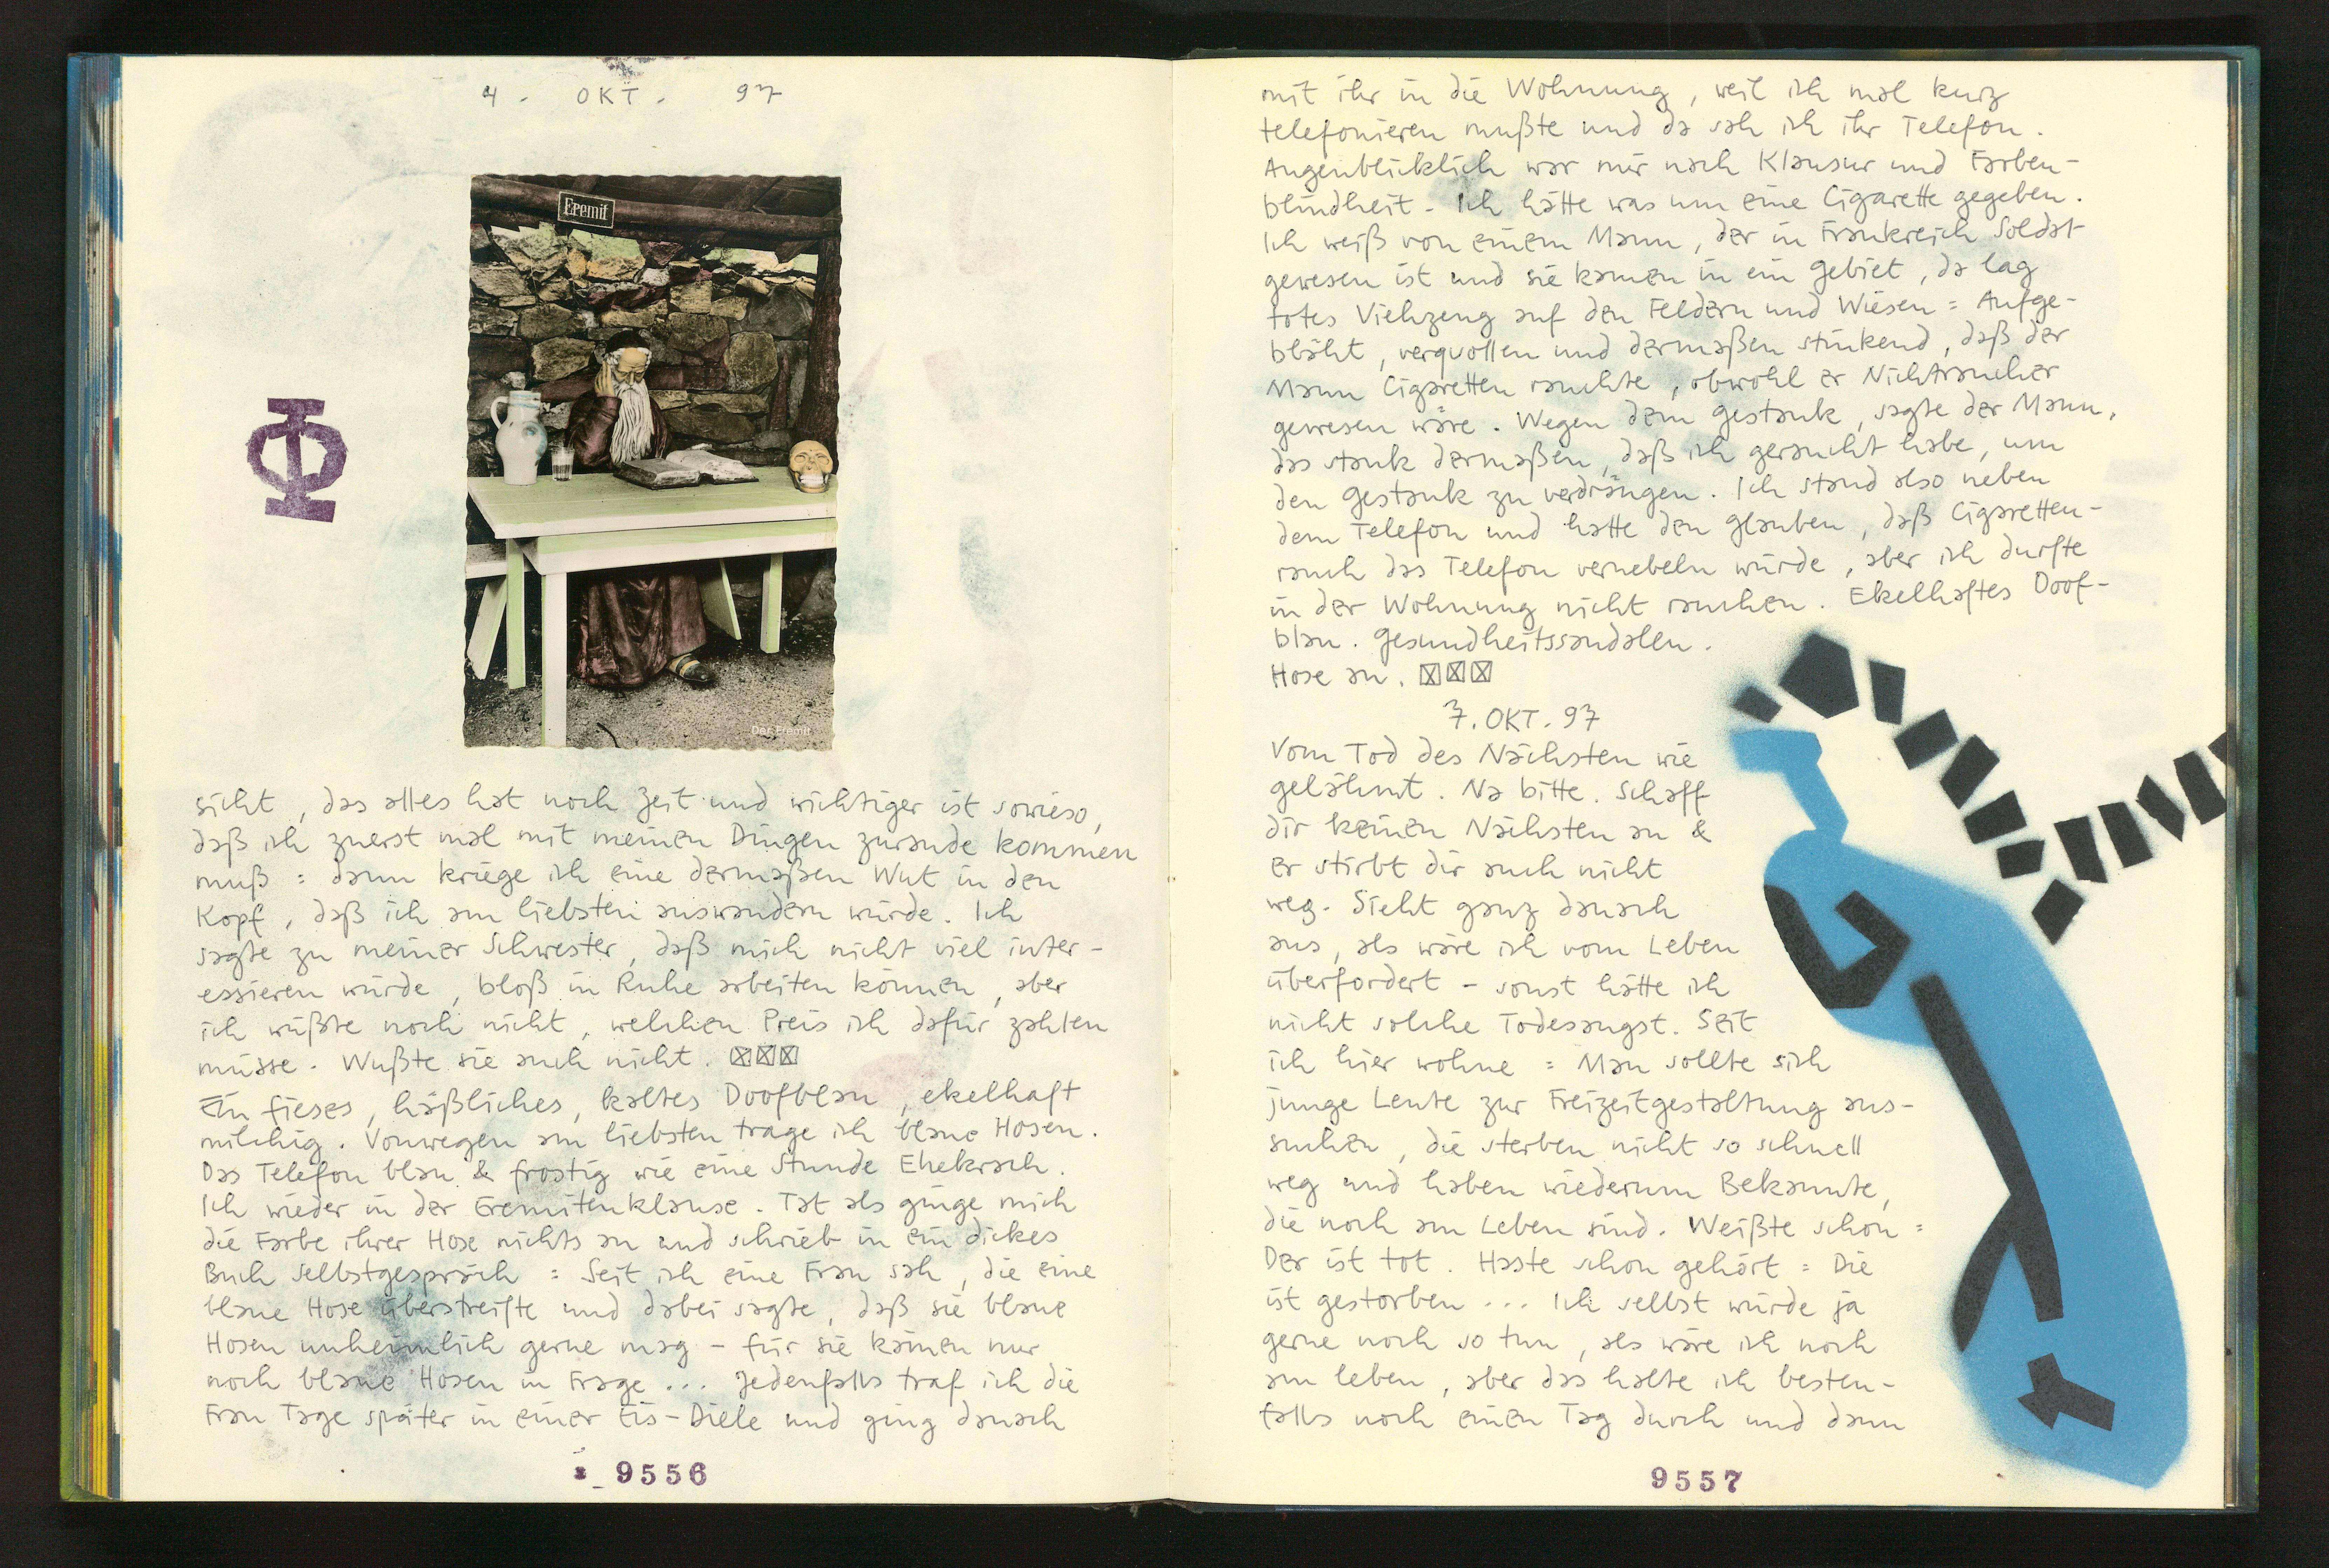 4. OKT. 97
Eremit
Der Eremit
Φ
sicht, das alles hat noch Zeit und wichtiger ist sowieso,
daß ich zuerst mal mit meinen Dingen zurande kommen
muß : dann kriege ich eine dermaßen Wut in den
Kopf, daß ich am liebsten auswandern würde. Ich
sagte zu meiner Schwester, daß mich nicht viel inter-
essieren würde, bloß in Ruhe arbeiten können, aber
ich wüßte noch nicht, welchen Preis ich dafür zahlen
müsse. Wußte sie auch nicht. ☒☒☒
Ein fieses, häßliches, kaltes Doofblau, ekelhaft
milchig. Vonwegen am liebsten trage ich blaue Hosen.
Das Telefon blau & frostig wie eine Stunde Ehekrach.
Ich wieder in der Eremitenklause. Tat als ginge mich
die Farbe ihrer Hose nichts an und schrieb in ein dickes
Buch Selbstgespräch : Seit ich eine Frau sah, die eine
blaue Hose überstreifte und dabei sagte, daß sie blaue
Hosen unheimlich gerne mag – für sie kämen nur
noch blaue Hosen in Frage ... Jedenfalls traf ich die
Frau Tage später in einer Eis-Diele und ging danach
9556
mit ihr in die Wohnung, weil ich mal kurz
telefonieren mußte und da sah ich ihr Telefon.
Augenblicklich war mir nach Klausur und Farben-
blindheit. Ich hätte was um eine Cigarette gegeben.
Ich weiß von einem Mann, der in Frankreich Soldat
gewesen ist und sie kamen in ein Gebiet, da lag
totes Viehzeug auf den Feldern und Wiesen : Aufge-
bläht, verquollen und dermaßen stinkend, daß der
Mann Cigaretten rauchte, obwohl er Nichtraucher
gewesen wäre. Wegen dem Gestank, sagte der Mann,
das stank dermaßen, daß ich geraucht habe, um
den Gestank zu verdrängen. Ich stand also neben
dem Telefon und hatte den Glauben, daß Cigaretten-
rauch das Telefon vernebeln würde, aber ich durfte
in der Wohnung nicht rauchen. Ekelhaftes Doof-
blau. Gesundheitssandalen.
Hose an. ☒☒☒
7. OKT. 97
Vom Tod des Nächsten wie
gelähmt. Na bitte. Schaff
dir keinen Nächsten an &
er stirbt dir auch nicht
weg. Sieht ganz danach
aus, als wäre ich vom Leben
überfordert – sonst hätte ich
nicht solche Todesangst. Seit
ich hier wohne : Man sollte sich
junge Leute zur Freizeitgestaltung aus-
suchen, die sterben nicht so schnell
weg und haben wiederum Bekannte,
die noch am Leben sind. Weißte schon :
Der ist tot. Haste schon gehört : Die
ist gestorben ... Ich selbst würde ja
gerne noch so tun, als wäre ich noch
am leben, aber das halte ich besten-
falls noch einen Tag durch und dann
9557